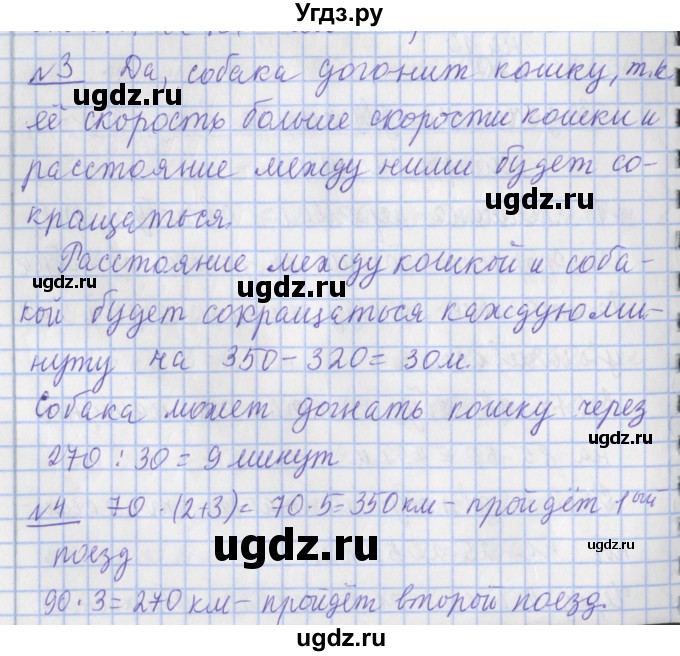 Угдз.ру
№3 Да, собака догонит кошку, т.к
её скорость больше скорости кошки и
расстояние между ними будет со-
кращаться.
Расстояние между кошкой и соба-
кой будет сокращаться каждую ми-
нуту на 350-320=30м.
Собака может догнать кошку через
270:30=9 минут
№4 70·(2+3)=70·5=350км-пройдёт 1ый
поезд
90·3=270км-пройдёт второй поезд.
ugdz.ru
ugdz.ru
ugdz.ru
ugdz.ru
ugdz.ru
ugdz.ru
ugdz.ru
ugdz.ru
ugdz.ru
ugdz.ru